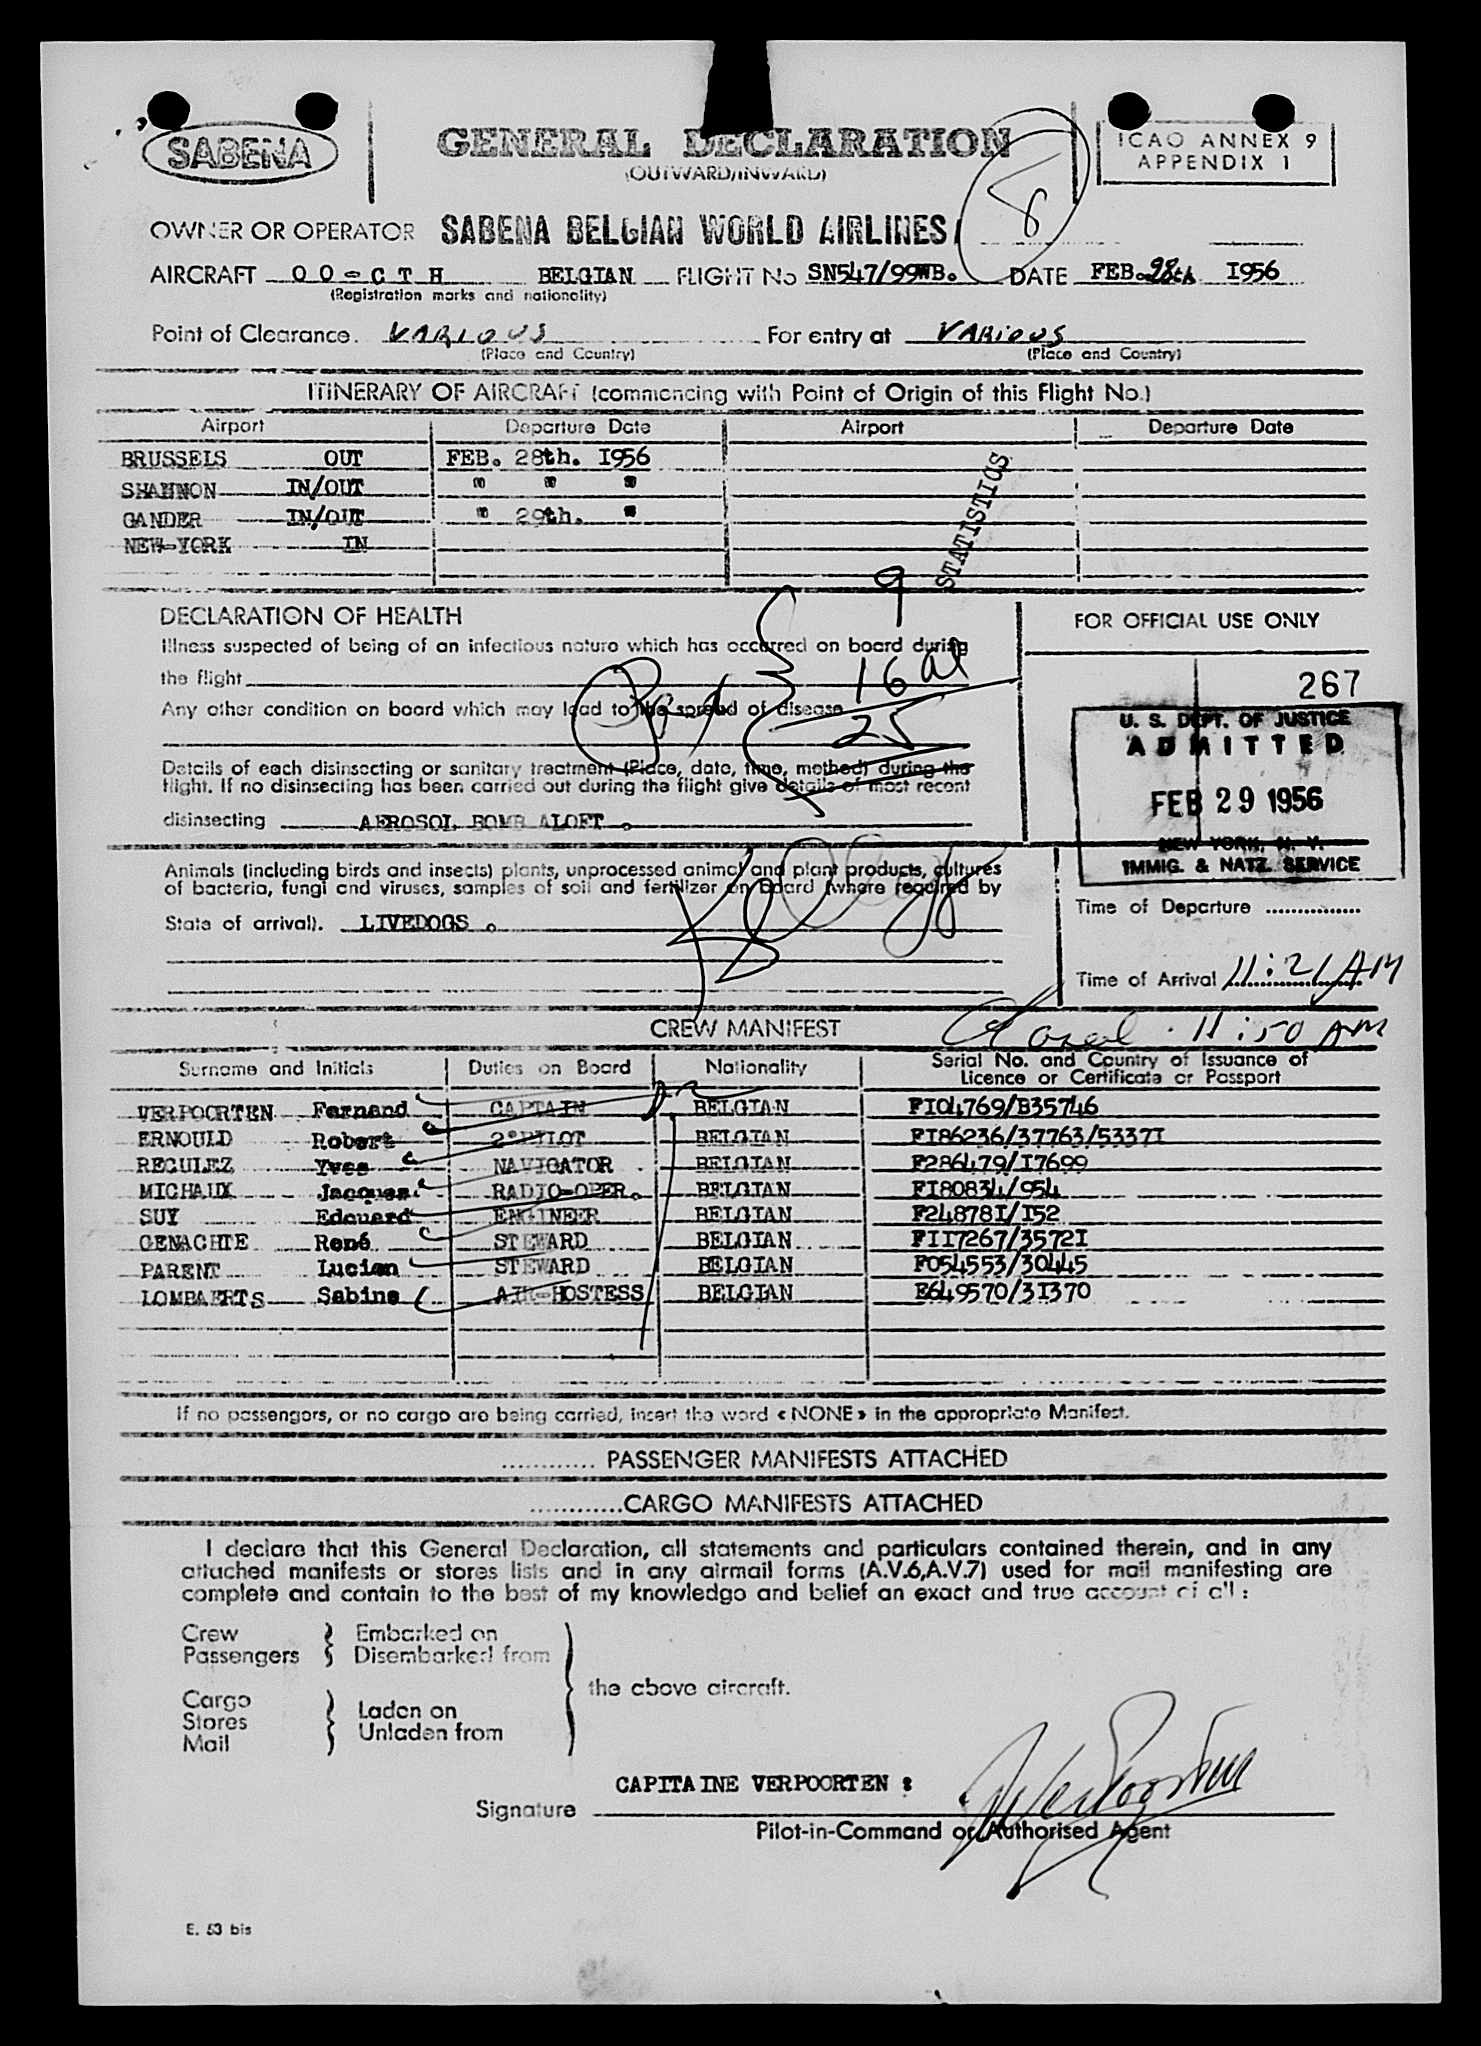 SABENA
GENERAL DECLARATION
(OUTWARD/INWARD)
ICAO ANNEX 9
APPENDIX 1
8
OWNER OR OPERATOR SABENA BELGIAN WORLD AIRLINES
AIRCRAFT OO-CTH BELGIAN FLIGHT No SN547/99WB. DATE FEB. 28th 1956
(Registration marks and nationality)
Point of Clearance. VARIOUS For entry at VARIOUS
(Place and Country) (Place and Country)
ITINERARY OF AIRCRAFT (commencing with Point of Origin of this Flight No.)
Airport Departure Date Airport Departure Date
BRUSSELS OUT FEB. 28th. I956
SHANNON IN/OUT " " "
GANDER IN/OUT " 29th. "
NEW-YORK IN
STATISTICS
DECLARATION OF HEALTH
Illness suspected of being of an infectious nature which has occurred on board during
the flight
Any other condition on board which may lead to the spread of disease
9
16 al
25
Details of each disinsecting or sanitary treatment (Place, date, time, method) during the
flight. If no disinsecting has been carried out during the flight give details of most recent
disinsecting AEROSOL BOMB ALOFT .
FOR OFFICIAL USE ONLY
267
U. S. DEPT. OF JUSTICE
ADMITTED
FEB 29 1956
NEW YORK, N. Y.
IMMIG. & NATZ. SERVICE
Animals (including birds and insects) plants, unprocessed animal and plant products, cultures
of bacteria, fungi and viruses, samples of soil and fertilizer on board (where required by
State of arrival). LIVEDOGS .
Time of Departure ...............
Time of Arrival 11:21 AM
11:50 AM
CREW MANIFEST
Surname and Initials Duties on Board Nationality Serial No. and Country of Issuance of
Licence or Certificate or Passport
VERPOORTEN Fernand CAPTAIN BELGIAN FI04769/B35746
ERNOULD Robert 2°PILOT BELGIAN FI86236/37763/5337I
REGULEZ Yves NAVIGATOR BELGIAN F286479/I7699
MICHAUX Jacques RADIO-OPER. BELGIAN FI80834/954
SUY Edouard ENGINEER BELGIAN F24878I/I52
GENACHTE René STEWARD BELGIAN FII7267/3572I
PARENT Lucien STEWARD BELGIAN F054553/30445
LOMBAERTS Sabine AIR-HOSTESS BELGIAN E649570/3I370
If no passengers, or no cargo are being carried, insert the word «NONE» in the appropriate Manifest.
............ PASSENGER MANIFESTS ATTACHED
............CARGO MANIFESTS ATTACHED
I declare that this General Declaration, all statements and particulars contained therein, and in any
attached manifests or stores lists and in any airmail forms (A.V.6,A.V.7) used for mail manifesting are
complete and contain to the best of my knowledge and belief an exact and true account of all :
Crew Embarked on
Passengers Disembarked from
the above aircraft.
Cargo Laden on
Stores Unladen from
Mail
CAPITAINE VERPOORTEN :
Signature
Pilot-in-Command or Authorised Agent
E. 53 bis